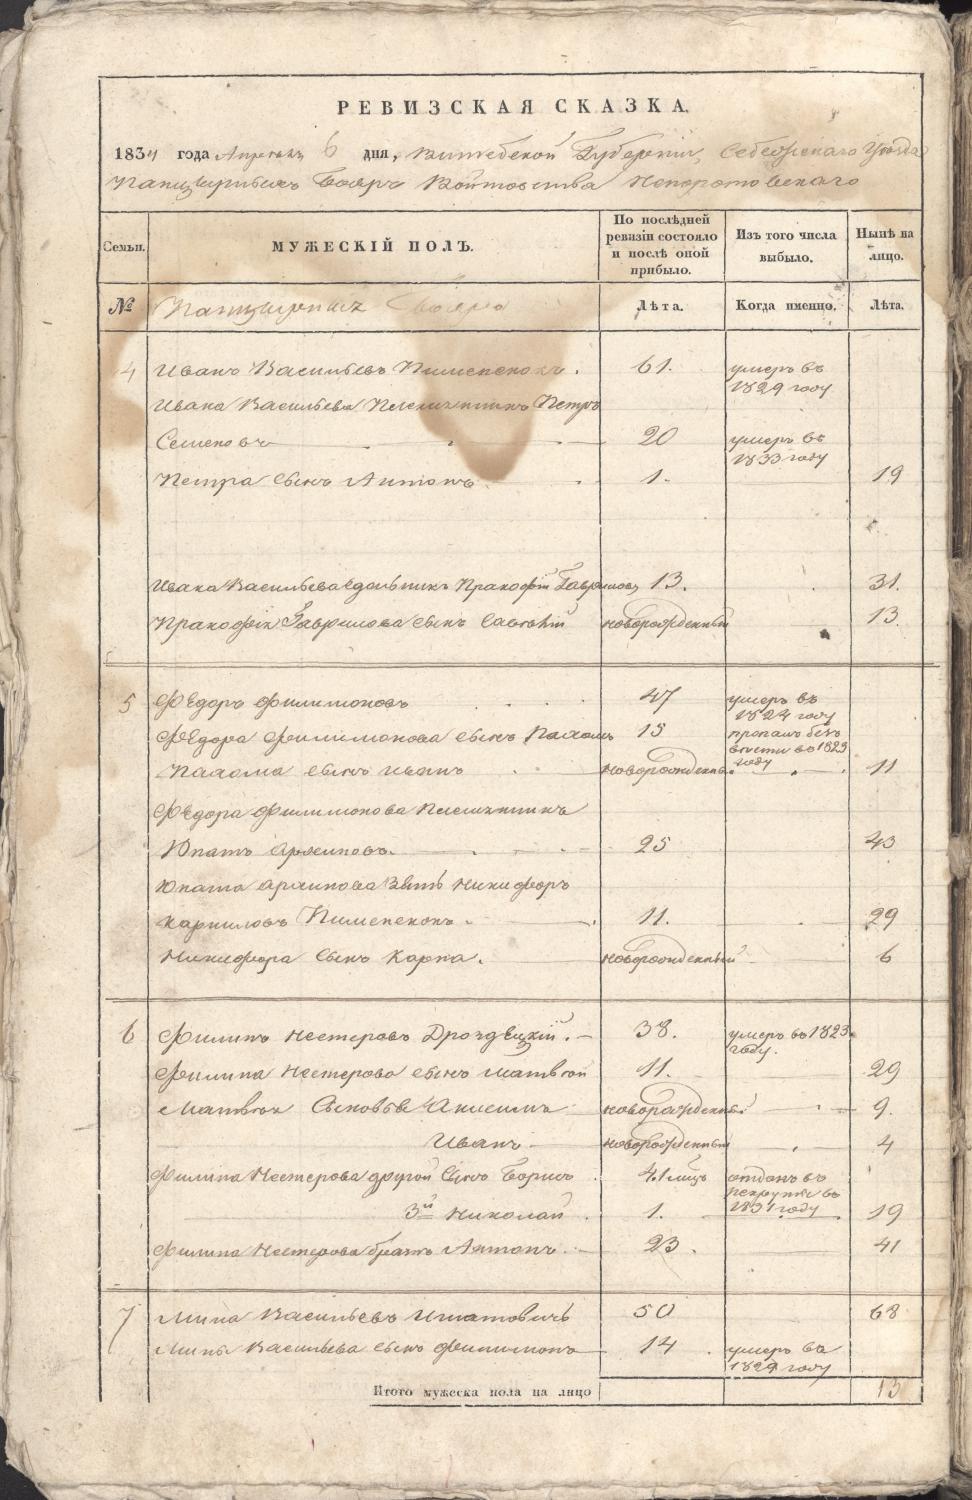 РЕВИЗСКАЯ СКАЗКА.
1834 года Апреля 6 дня, Витебской Губернии, Себежскаго Уѣзда
Панцырныхъ Бояръ Войтовства Непоротовскаго
Семьи. МУЖЕСКІЙ ПОЛЪ. По послѣдней ревизіи состояло и послѣ оной прибыло. Изъ того числа выбыло. Нынѣ на лицо.
№ Панцырныхъ Бояръ Лѣта. Когда именно. Лѣта.
4 Иванъ Васильевъ Пименёнокъ. 61. умеръ въ 1829 году
Ивана Васильева Племянникъ Петръ
Семеновъ 20 умеръ въ 1833 году
Петра сынъ Антонъ 1. 19
Ивана Васильева Прокофій Гавриловъ 13. 31.
Прокофія Гаврилова сынъ Савелій новорожденный 13.
5 Ѳедоръ Филимоновъ 47 умеръ въ 1824 году
Ѳедора Филимонова сынъ Пахомъ 15 пропалъ безъ вѣсти въ 1823 году
Пахома сынъ Иванъ новорожденный 11
Ѳедора Филимонова Племянникъ
Юпатъ Архиповъ. 25 43
Юпата Архипова Зять Никифоръ
Карпиловъ Пименёнокъ. 11. 29
Никифора сынъ Карпа. новорожденный 6
6 Филипъ Нестеровъ Дроздецкій. 38. умеръ въ 1823. году.
Филипа Нестерова сынъ Матвѣй 11. 29
Матвѣя Сыновья Анисимъ новорожденный 9.
Иванъ новорожденный 4
Филипа Нестерова другой сынъ Борисъ отданъ въ рекруты въ 1831 году
3й Николай 1. 19
Филипа Нестерова братъ Антонъ. 23. 41
7 Мина Васильевъ Игнатовичъ 50 68
Мины Васильева сынъ Филимонъ 14. умеръ въ 1829 году
Итого мужеска пола на лицо 13